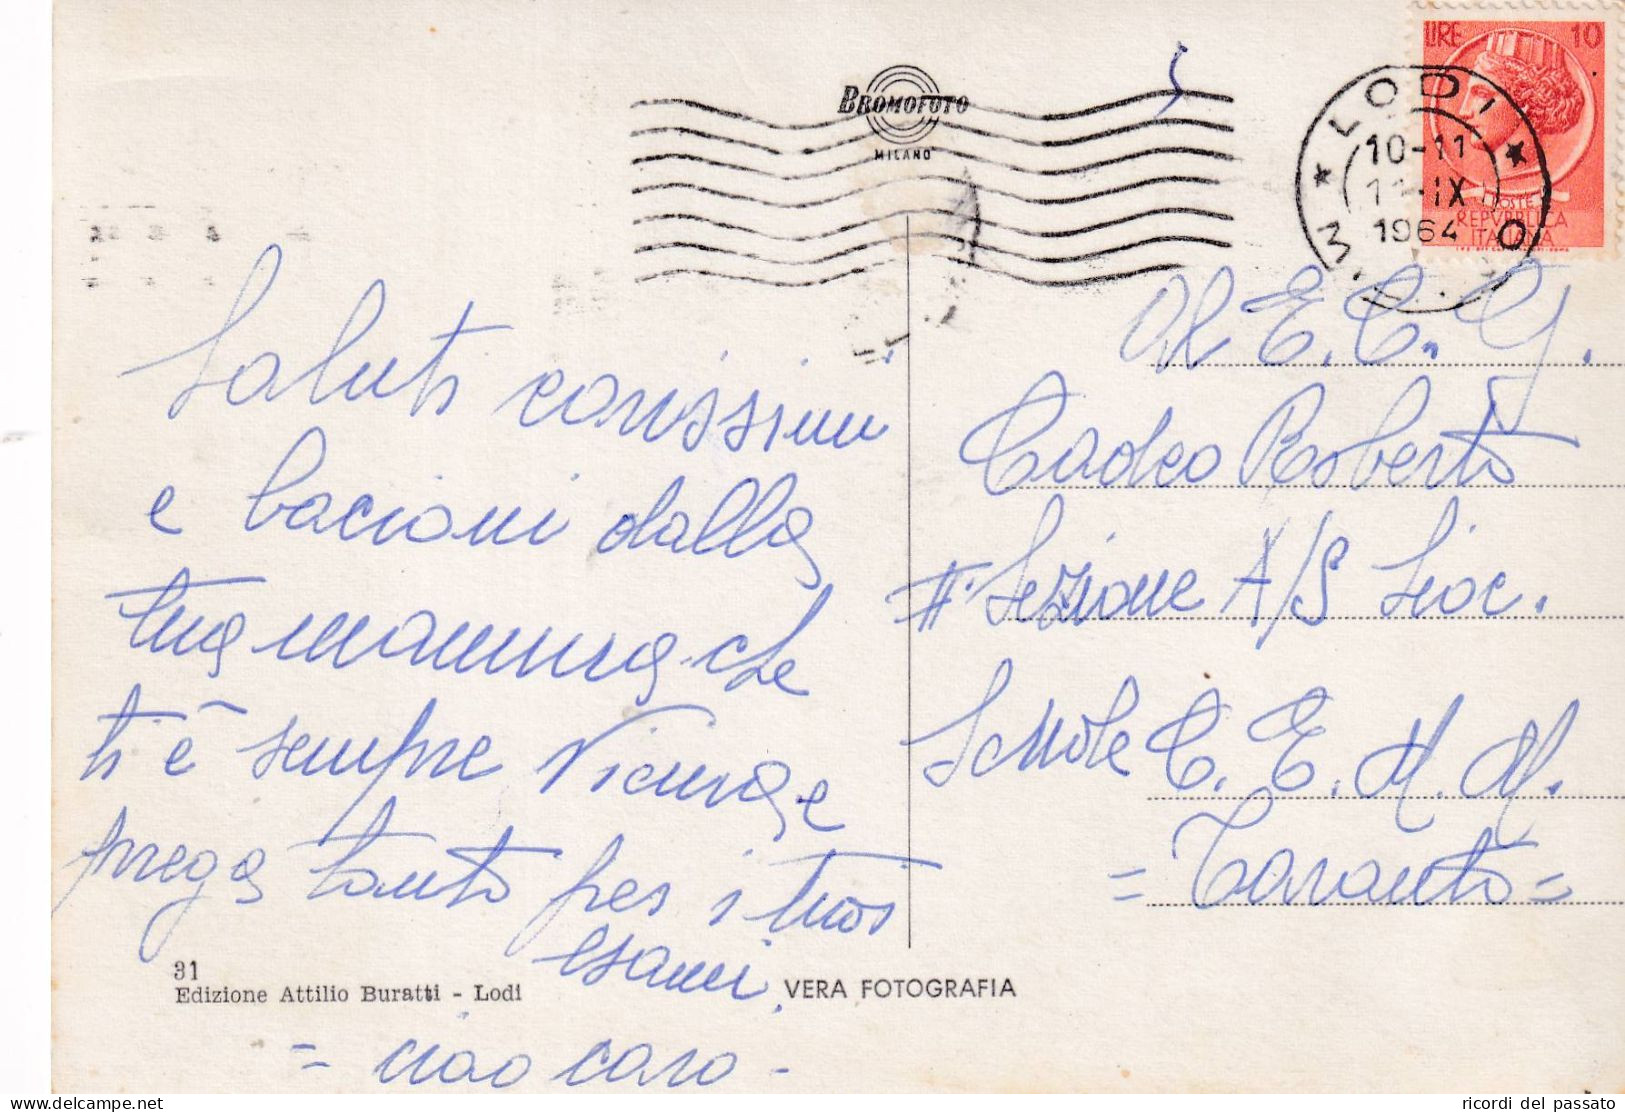 BROMOFOTO
MILANO
LIRE 10
LODI
10-11
11-IX
1964
POSTE
REPVBBLICA
ITALIANA
Saluti carissimi
e bacioni dalla
tua mamma che
ti è sempre vicina e
prega tanto per i tuoi
esami.
= ciao caro -
Al E. C. G.
Cadeo Roberto
II Sezione A/S
Scuole C. E. M. M.
= Taranto =
31
Edizione Attilio Buratti - Lodi
VERA FOTOGRAFIA
delcampe.net
ricordi del passato